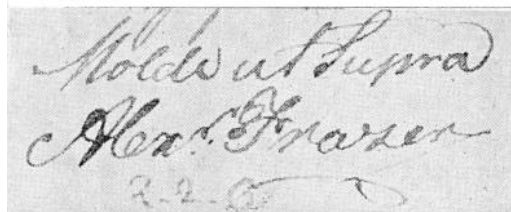 Molde ut Supra
Alexr. Frazer
2-2-0